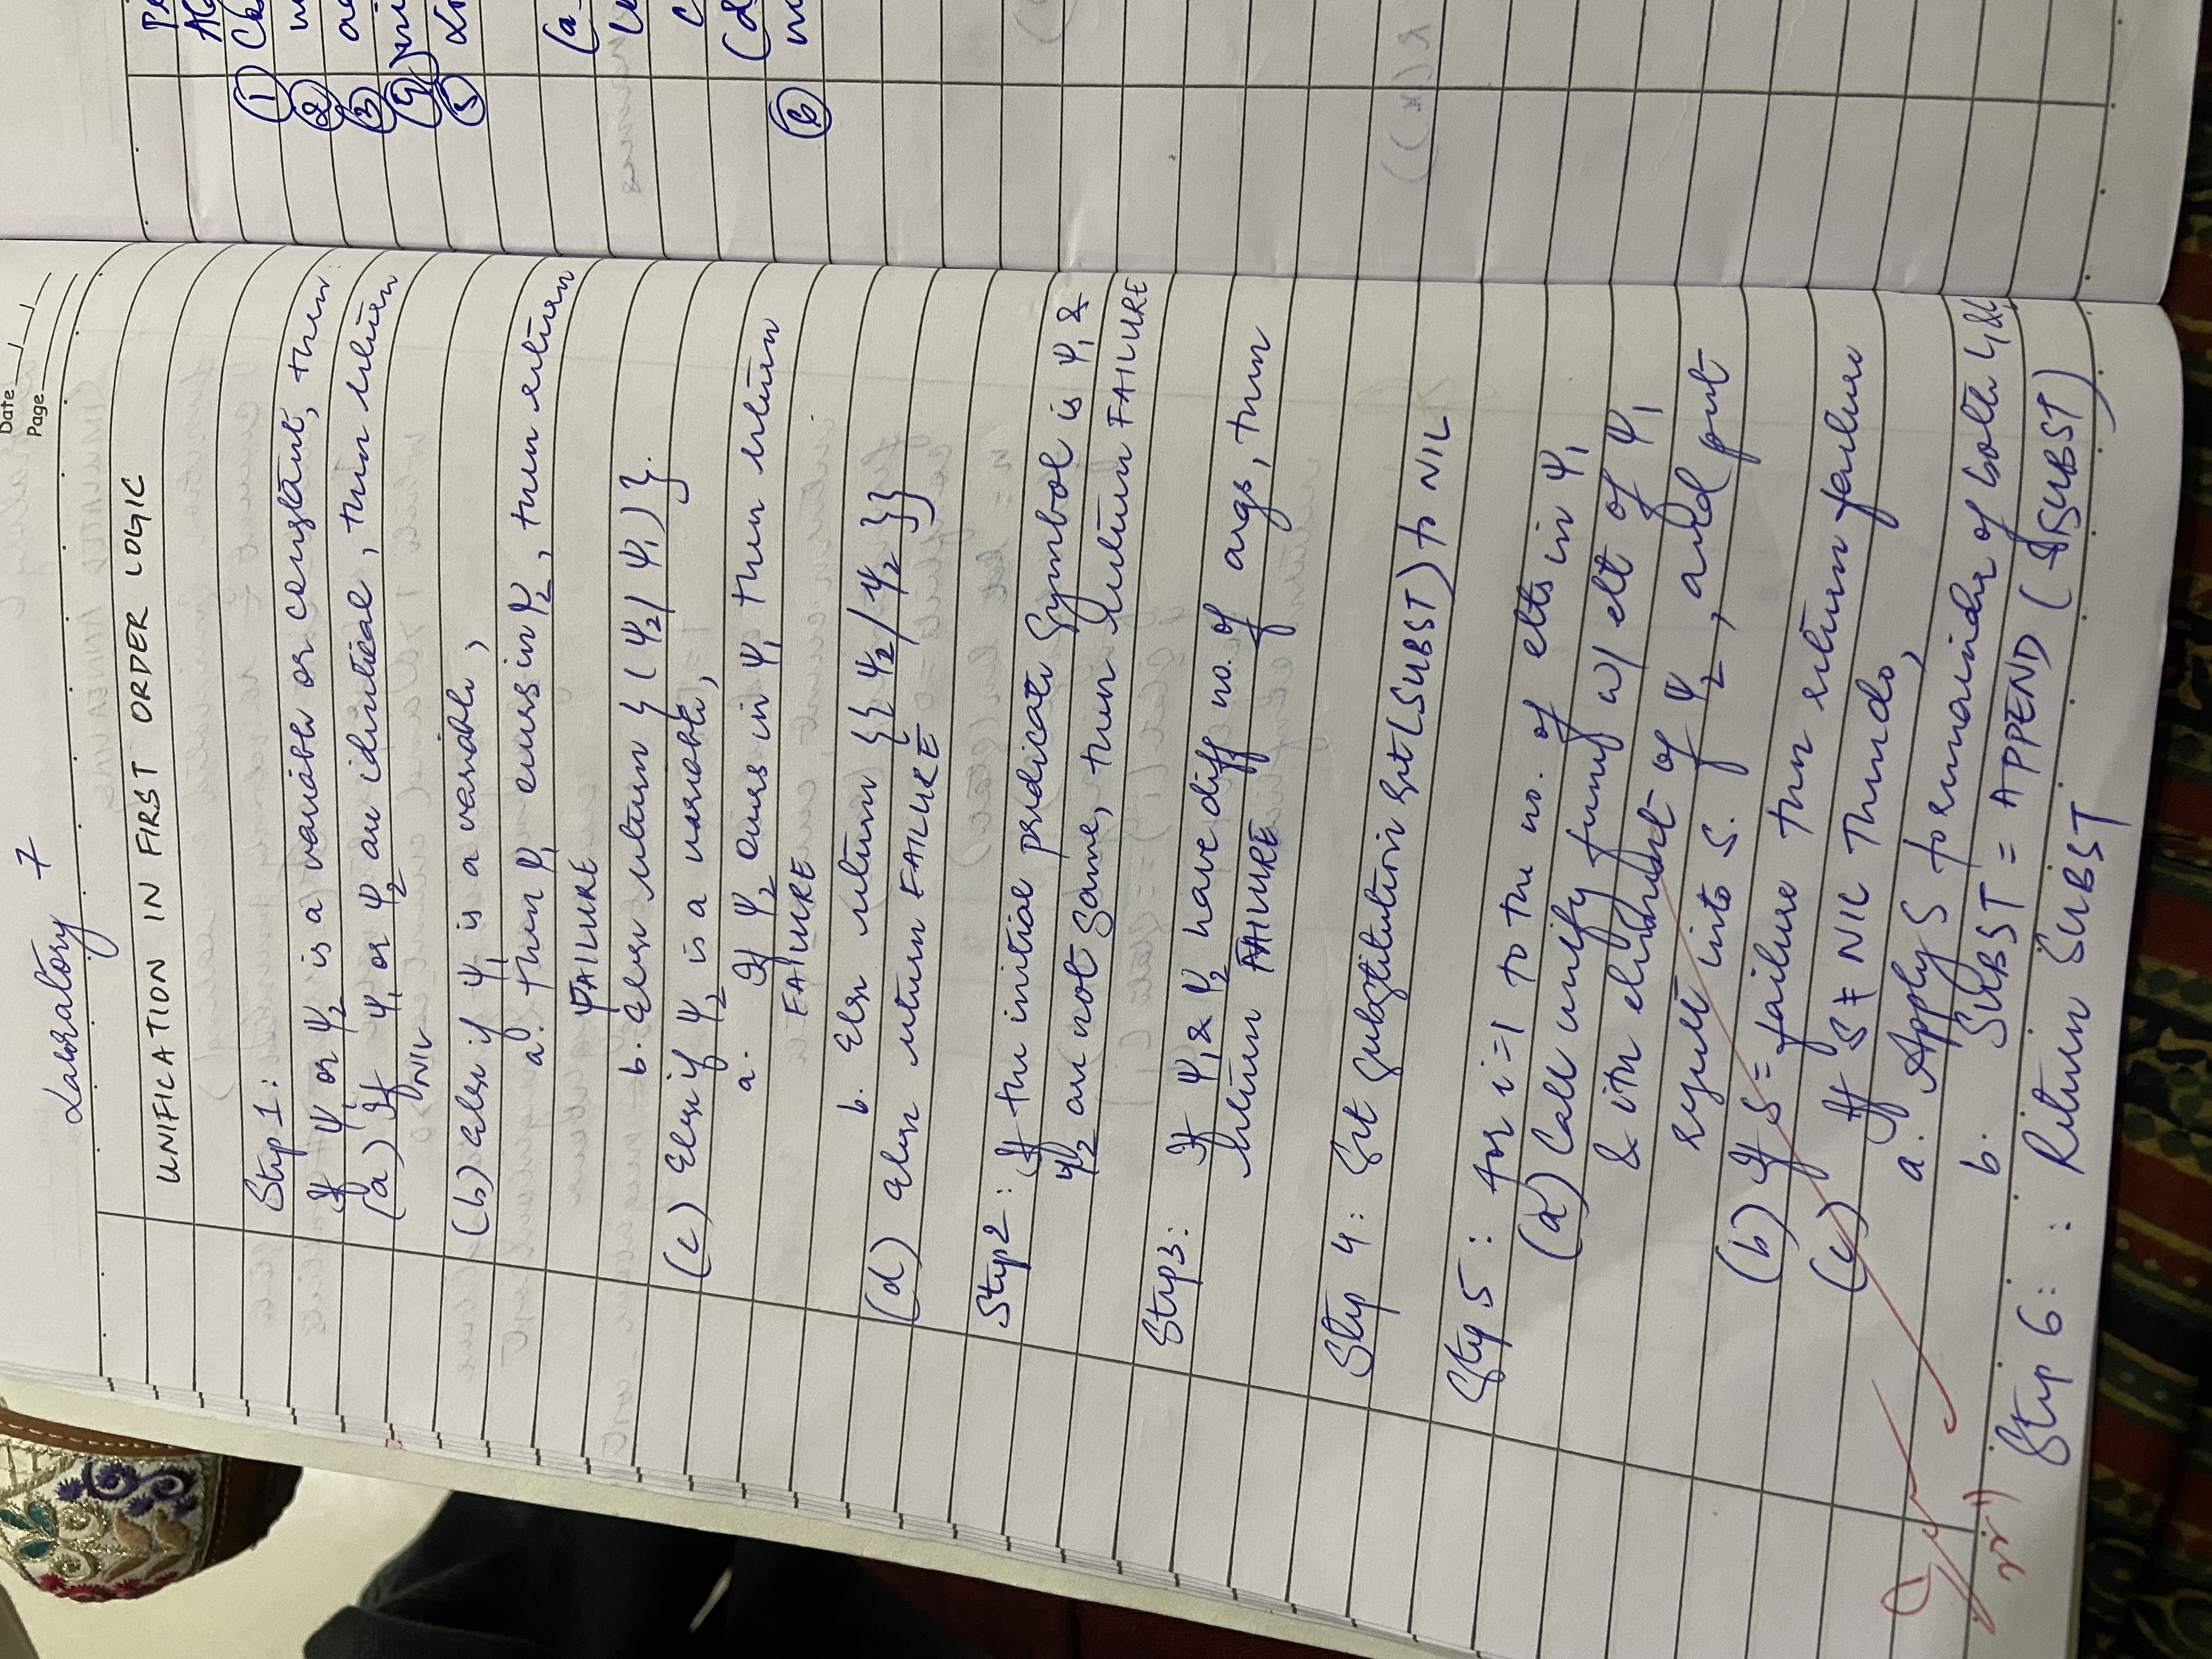 Date
Page
Laboratory 7
UNIFICATION IN FIRST ORDER LOGIC
Step 1:
If Ψ1 or Ψ2 is a variable or constant, then:
(a) If Ψ1 or Ψ2 are identical, then return
NIL
(b) Else if Ψ1 is a variable,
a. then Ψ1 occurs in Ψ2, then return
FAILURE
b. Else return { (Ψ2/ Ψ1) }.
(c) Else if Ψ2 is a variable,
a. If Ψ2 occurs in Ψ1 then return
FAILURE
b. Else return {{ Ψ2/Ψ2 }}
(d) Else return FAILURE
Step2: If the initial predicate symbol is Ψ1 &
Ψ2 are not same, then return FAILURE
Step3: If Ψ1 & Ψ2 have diff no. of args, then
return FAILURE
Step 4: Set substitution set (SUBST) to NIL
Step 5: for i=1 to the no. of elts in Ψ1
(a) Call unify func w/ elt of Ψ1
& ith element of Ψ2, and put
result into S.
(b) If S = failure then return failure
(c) If S ≠ NIL Then do,
a. Apply S to remainder of both L1 &
b. SUBST = APPEND (SUBST)
Step 6: : Return SUBST
①
②
③
④
⑤
(a
(d
⑥